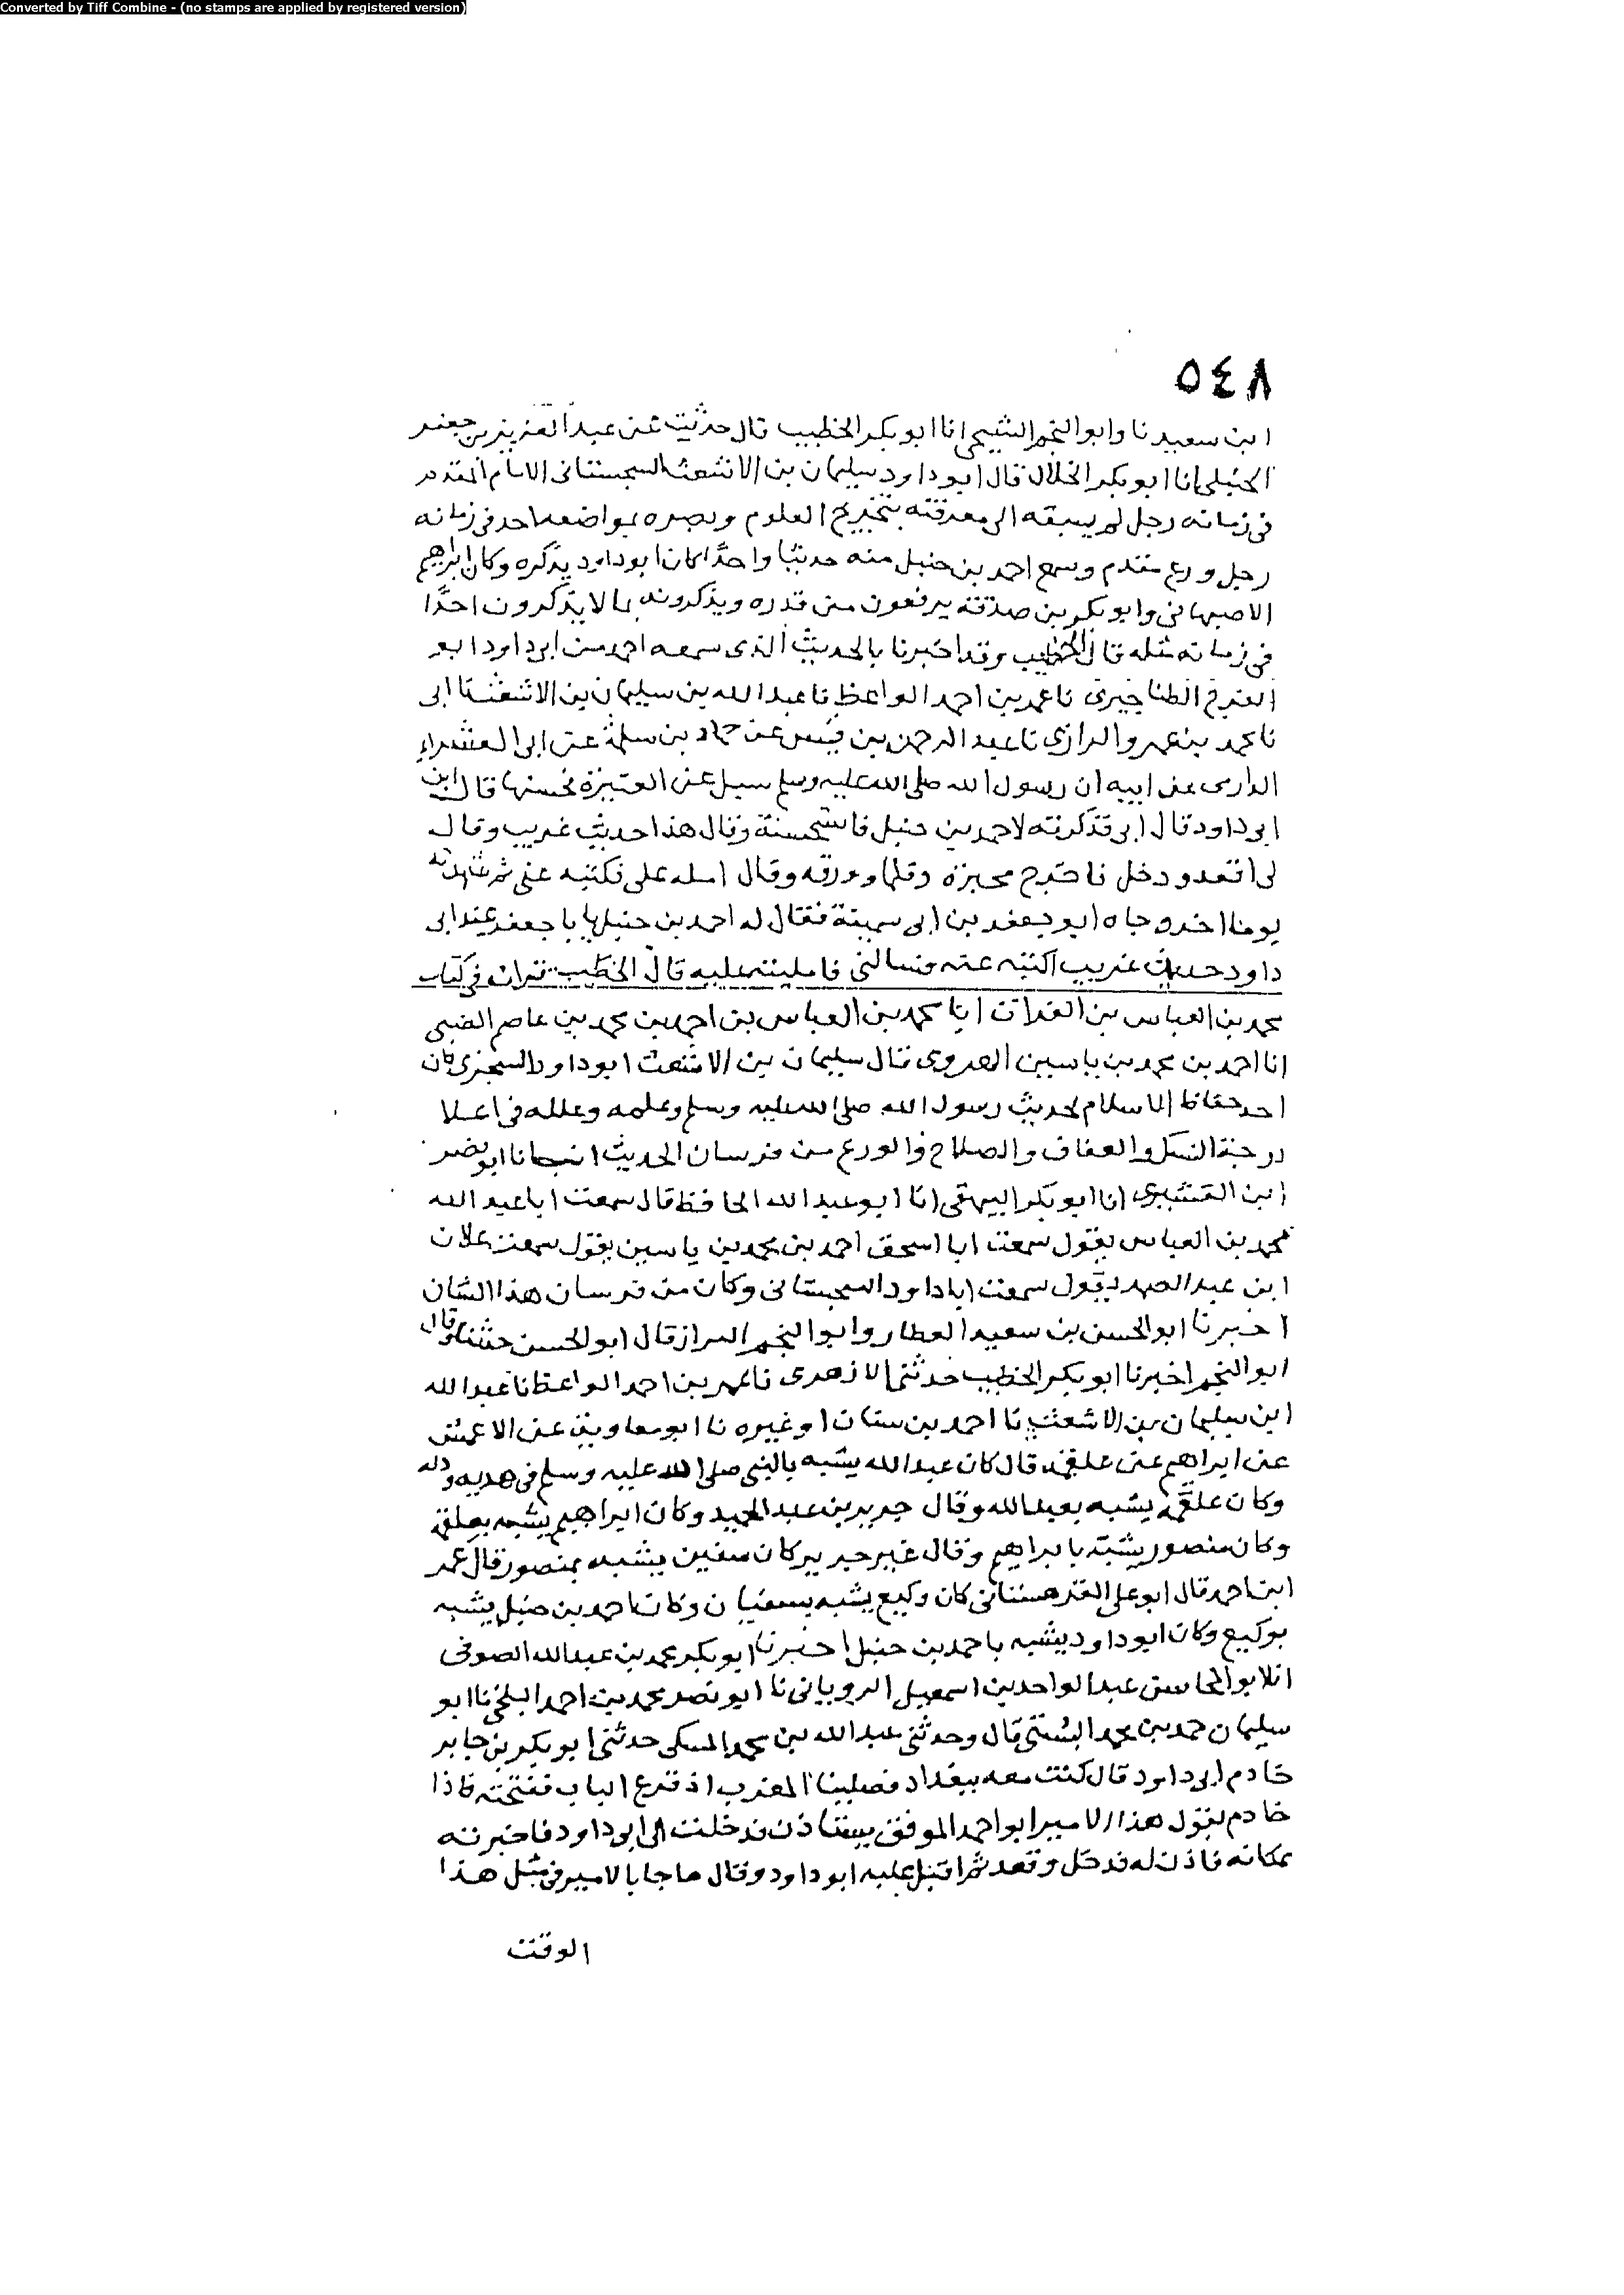 Converted by Tiff Combine - (no stamps are applied by registered version)
٥٤٨
ابن سعيد نا وابو النجم الشيحي انا ابو بكر الخطيب قال حدثت عن عبد العزيز بن جعفر
الحنبلي انا ابو بكر الخلال قال ابو داود سليمان بن الاشعث السجستاني الامام المقدم
في زمانه رجل لم يسبقه الى معرفته بتخريج العلوم وبصره بمواضعه احد في زمانه
رجل ورع متقدم وسمع احمد بن حنبل منه حديثا واحدًا كان ابو داود يذكره وكان ابراهيم
الاصبهاني وابو بكر بن صدقة يرفعون من قدره ويذكرونه بما لا يذكرون احدًا
في زمانه مثله قال الخطيب وقد اخبرنا بالحديث الذي سمعه احمد من ابي داود ابو
الفرج الطناجيري نا عمر بن احمد الواعظ نا عبد الله بن سليمان بن الاشعث نا ابي
نا محمد بن عمرو الرازي نا عبد الرحمن بن قيس عن حماد بن سلمة عن ابي العشراء
الدارمي عن ابيه ان رسول الله صلى الله عليه وسلم سيل عن العتيرة فحسنها قال ابن
ابي داود قال ابي فذكرته لاحمد بن حنبل فاستحسنه وقال هذا حديث غريب وقال
لي اقعد ودخل فاخرج محبرة وقلما وورقة وقال امله علي فكتبه عني ثم شهدته
يوما اخر وجاه ابو جعفر بن ابي سمينة فقال له احمد بن حنبل يا با جعفر عند ابي
داود حديث غريب اكتبه عنه فسالني فامليته عليه قال الخطيب قرات في كتاب
محمد بن العباس بن الفرات انا محمد بن العباس بن احمد بن محمد بن عاصم الضبي
انا احمد بن محمد بن ياسين الهروي قال سليمان بن الاشعث ابو داود السجزي كان
احد حفاظ الاسلام لحديث رسول الله صلى الله عليه وسلم وعلمه وعلله في اعلا
درجة النسك والعفاف والصلاح والورع من فرسان الحديث انبانا ابو نصر
ابن القشيري انا ابو بكر البيهقي انا ابو عبد الله الحافظ قال سمعت ابا عبد الله
محمد بن العباس يقول سمعت ابا اسحق احمد بن محمد بن ياسين يقول سمعت علان
ابن عبد الصمد يقول سمعت ابا داود السجستاني وكان من فرسان هذا الشان
اخبرنا ابو الحسن بن سعيد العطار وابو النجم البزاز قال ابو الحسن حدثنا وقال
ابو النجم اخبرنا ابو بكر الخطيب حدثني الازهري نا عمر بن احمد الواعظ نا عبد الله
ابن سليمان بن الاشعث نا احمد بن سنان او غيره نا ابو معاوية عن الاعمش
عن ابراهيم عن علقمة قال كان عبد الله يشبه بالنبي صلى الله عليه وسلم في هديه ودله
وكان علقمة يشبه بعبد الله وقال جرير بن عبد الحميد وكان ابراهيم يشبه بعلقمة
وكان منصور يشبه بابراهيم وقال غير جرير كان سفين يشبه بمنصور قال عمر
ابن احمد قال ابو علي القهستاني كان وكيع يشبه بسفيان وكان احمد بن حنبل يشبه
بوكيع وكان ابو داود يشبه باحمد بن حنبل اخبرنا ابو بكر محمد بن عبد الله الصوفي
انا ابو المحاسن عبد الواحد بن اسمعيل الروياني نا ابو نصر محمد بن احمد البلخي نا ابو
سليمان حمد بن محمد البُستي قال وحدثني عبد الله بن محمد المسكي حدثني ابو بكر بن جابر
خادم ابي داود قال كنت معه ببغداد فصلينا المغرب اذ قرع الباب ففتحته فاذا
خادم يقول هذا الامير ابو احمد الموفق يستاذن فدخلت الى ابي داود فاخبرته
بمكانه فاذن له فدخل وقعد ثم اقبل عليه ابو داود وقال ما جا بالامير في مثل هذا
الوقت